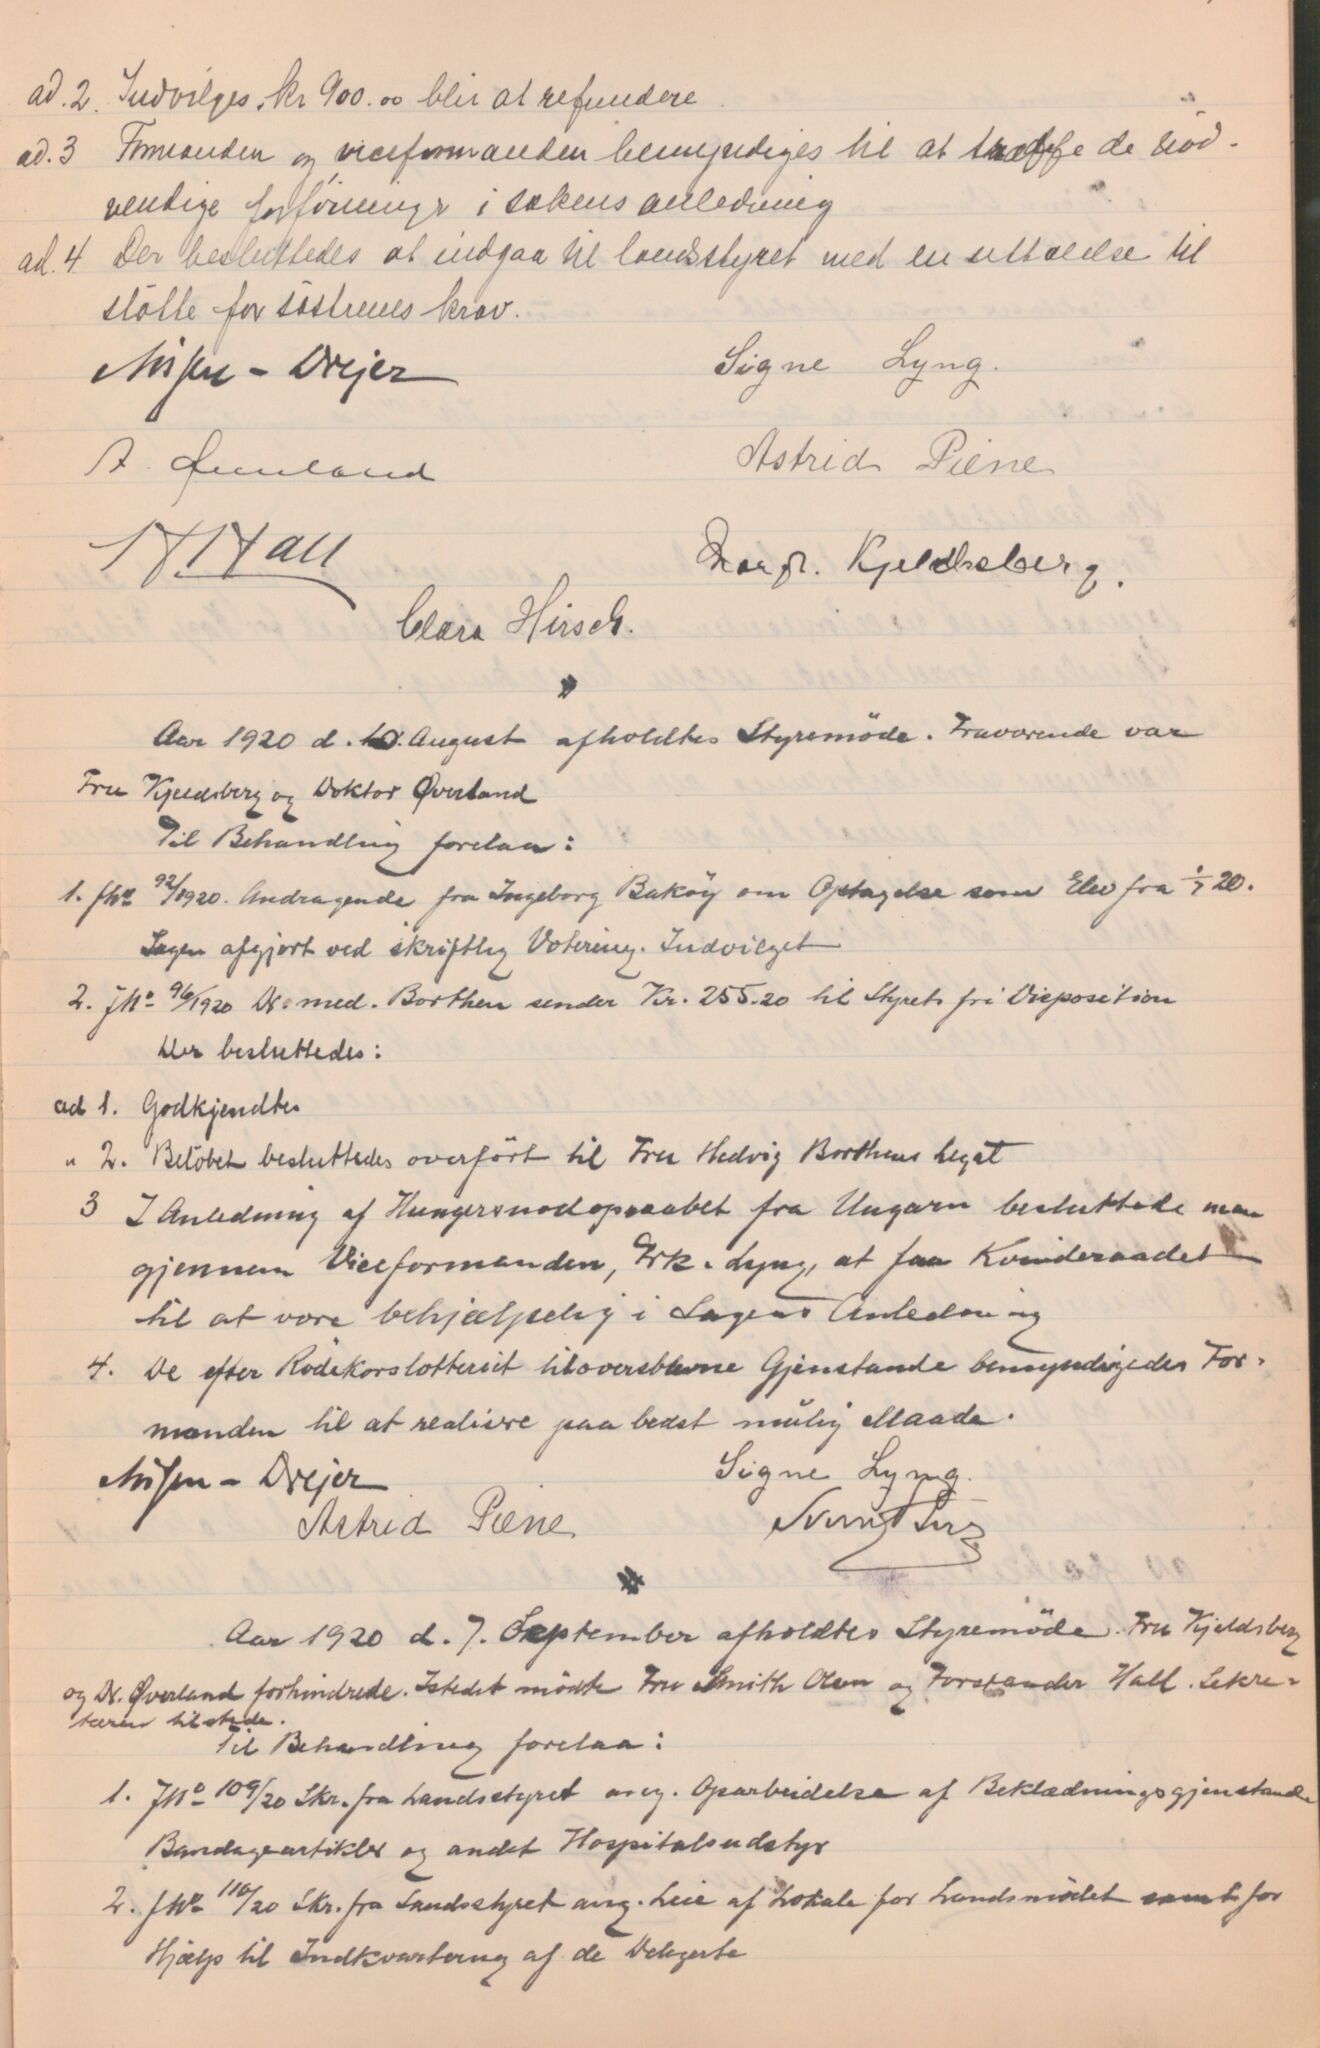 ad. 2. Indvilges. kr 900.00 blir at refundere
ad. 3 Formanden og viceformanden bemyndiges til at træffe de nöd-
vendige forföininger i sakens anledning
ad. 4 Der besluttedes at indgaa til landsstyret med en uttalelse til
stötte for söstrenes krav.
Nissen - Drejer Signe Lyng.
A. Øverland Astrid Piene
H Hall Margr. Kjeldsberg.
Clara Hirsch.
Aar 1920 d. 10. August afholdtes Styremöde. Fraværende var
Fru Kjeldsberg og Doktor Øverland
Til Behandling forelaa:
1. JNo 92/1920. Andragende fra Ingeborg Baköy om Optagelse som Elev fra 1/7 20.
Sagen afgjort ved skriftlig Votering. Indvilget
2. JNo 96/1920 Dr. med. Borthen sender Kr. 255.20 til Styrets fri Disposition
Der besluttedes:
ad 1. Godkjendtes
" 2. Belöbet besluttedes overfört til Fru Hedvig Borthens Legat
3 I Anledning af Hungersnødopraabet fra Ungarn besluttede man
gjennem Viceformanden, Frk. Lyng, at faa Kvinderaadet
til at være behjælpelig i Sagens Anledning
4. De efter Rödekorslotteriet tiloversblevne Gjenstande bemyndigedes For-
manden til at realisere paa bedst mulig Maade.
Nissen - Drejer Signe Lyng.
Astrid Piene
Aar 1920 d. 7. September afholdtes Styremöde. Fru Kjeldsberg
og Dr. Øverland forhindrede. Istedet mödte Fru Smith Olsen og Forstander Hall. Sekre-
tæren tilstede.
Til Behandling forelaa:
1. JNo 109/20 Skr. fra Landsstyret ang. Oparbeidelse af Beklædningsgjenstande
Bandageartikler og andet Hospitalsudstyr
2. JNo 110/20 Skr. fra Landsstyret ang. Leie af Lokale for Landsmödet samt for
Hjælp til Indkvartering af de Delegerte